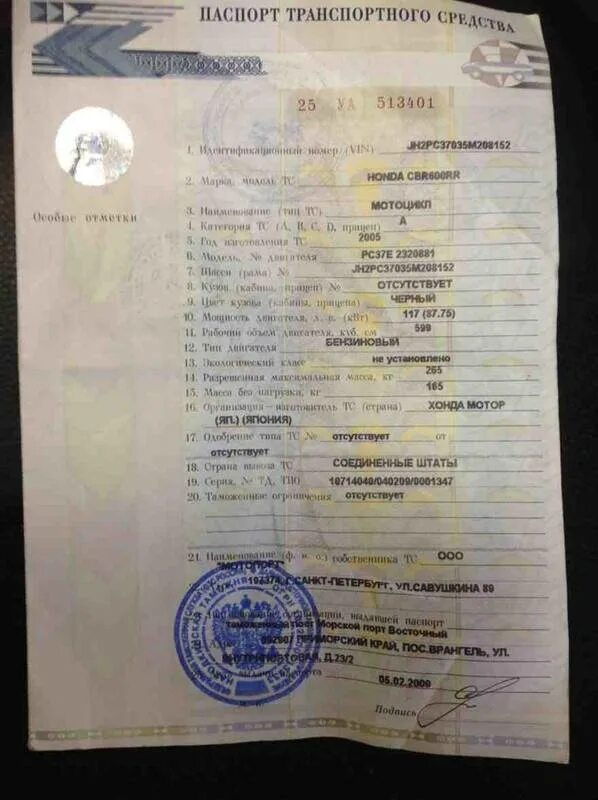 ПАСПОРТ ТРАНСПОРТНОГО СРЕДСТВА
25 УА 513401
1. Идентификационный номер (VIN) JH2PC37035M208152
2. Марка, модель ТС HONDA CBR600RR
Особые отметки
3. Наименование (тип ТС) МОТОЦИКЛ
4. Категория ТС (A, B, C, D, прицеп) A
5. Год изготовления ТС 2005
6. Модель, № двигателя PC37E 2320881
7. Шасси (рама) № JH2PC37035M208152
8. Кузов (кабина, прицеп) № ОТСУТСТВУЕТ
9. Цвет кузова (кабины, прицепа) ЧЕРНЫЙ
10. Мощность двигателя, л. с. (кВт) 117 (87.75)
11. Рабочий объем двигателя, куб. см 599
12. Тип двигателя БЕНЗИНОВЫЙ
13. Экологический класс не установлено
14. Разрешенная максимальная масса, кг 265
15. Масса без нагрузки, кг 165
16. Организация-изготовитель ТС (страна) ХОНДА МОТОР
(ЯП.) (ЯПОНИЯ)
17. Одобрение типа ТС № отсутствует от
отсутствует
18. Страна вывоза ТС СОЕДИНЕННЫЕ ШТАТЫ
19. Серия, № ТД, ТПО 10714040/040209/0001347
20. Таможенные ограничения отсутствует
21. Наименование (ф. и. о.) собственника ТС ООО
"МОТОПОРТ"
197374, Г. САНКТ-ПЕТЕРБУРГ, УЛ.САВУШКИНА 89
организации, выдавшей паспорт
таможенный пост Морской порт Восточный
ПРИМОРСКИЙ КРАЙ, ПОС.ВРАНГЕЛЬ, УЛ.
ВНУТРИПОРТОВАЯ, Д.23/2
05.02.2009
Подпись